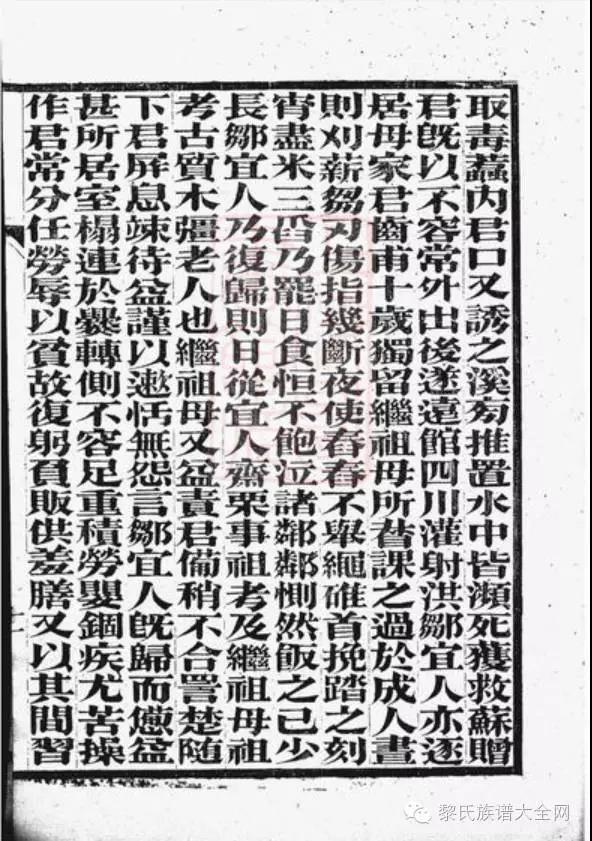 取毒蠚內君口又誘之溪旁推置水中皆瀕死獲救蘇贈
君既以不容常外出後遂遠館四川灌射洪鄒宜人亦逐
居母家君齒甫十歲獨留繼祖母所督課之過於成人晝
則刈薪芻刃傷指幾斷夜使舂舂不舉繩碓首挽踏之刻
宵盡米三番乃罷日食恒不飽泣諸鄰鄰惻然飯之已少
長鄒宜人乃復歸則日從宜人齋栗事祖考及繼祖母祖
考古質木彊老人也繼祖母又益責君備稍不合詈楚隨
下君屏息竦待益謹以遬恬無怨言鄒宜人既歸而癒益
甚所居室榻連於爨轉側不容足重積勞嬰錮疾尤苦操
作君常分任勞辱以貧故復躬負販供羞膳又以其間習
黎氏族谱大全网